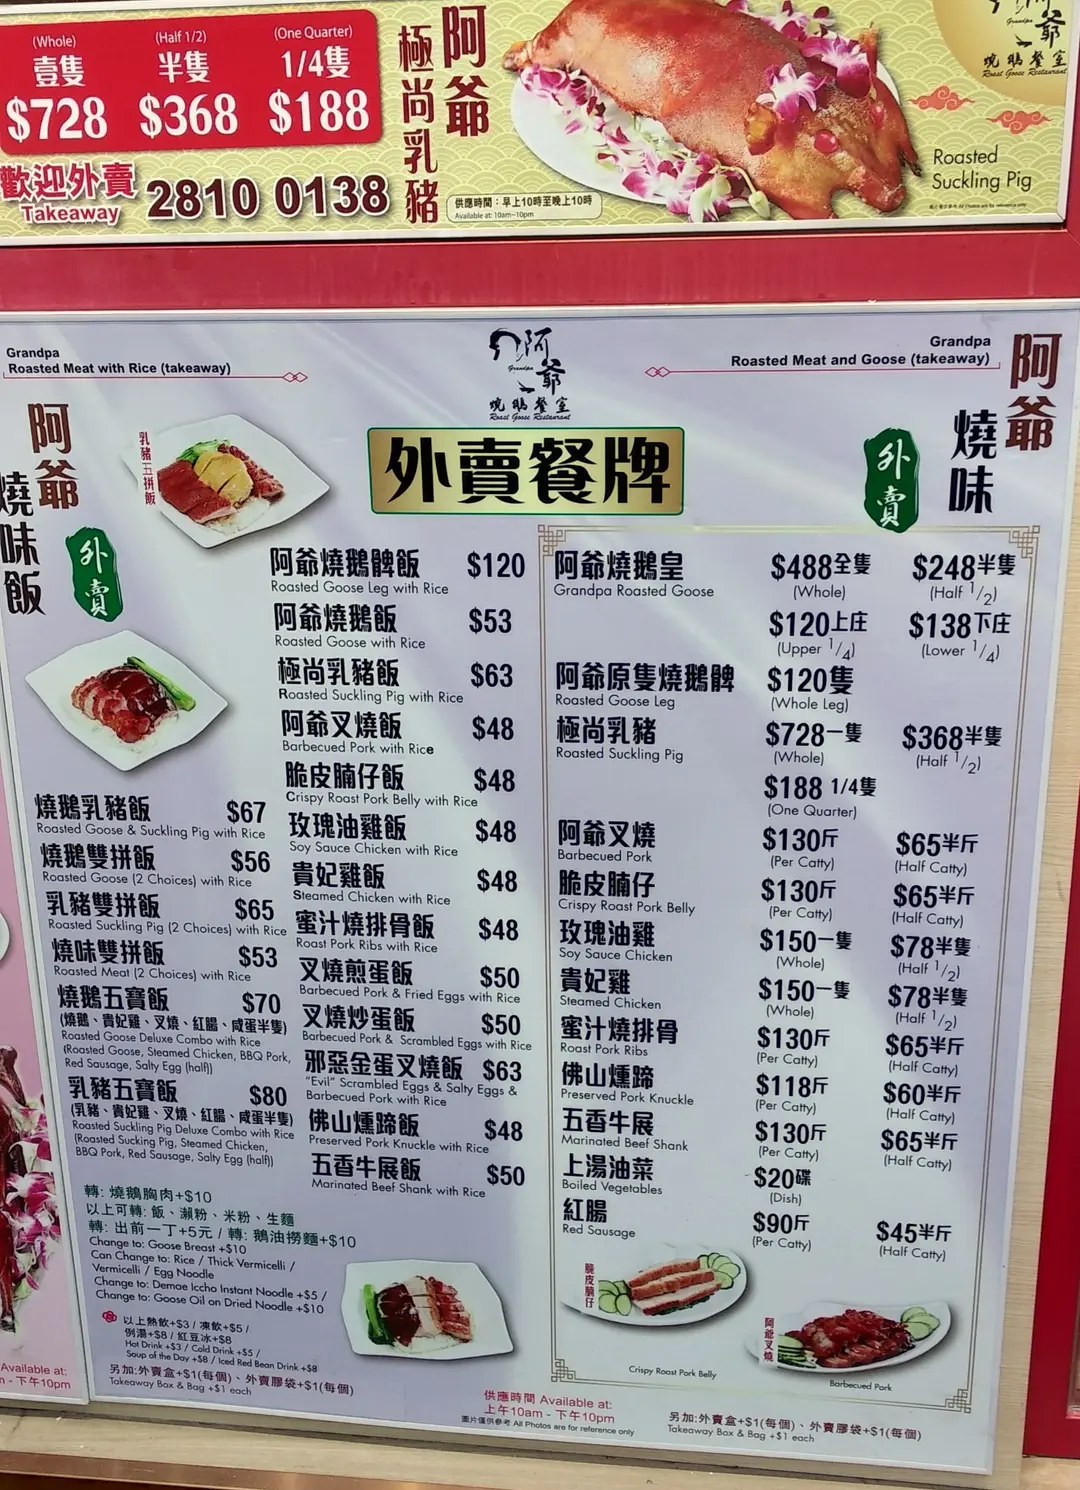 (Whole)
壹隻
$728
(Half 1/2)
半隻
$368
(One Quarter)
1/4隻
$188
歡迎外賣
Takeaway
2810 0138
阿爺
極尚乳豬
供應時間：早上10時至晚上10時
Available at: 10am~10pm
Roasted
Suckling Pig
阿爺
Grandpa
燒鵝餐室
Roast Goose Restaurant
Grandpa
Roasted Meat with Rice (takeaway)
阿爺
Grandpa
燒鵝餐室
Roast Goose Restaurant
Grandpa
Roasted Meat and Goose (takeaway)
阿爺
燒味
外賣
外賣餐牌
阿爺
燒味飯
外賣
乳豬五拼飯
阿爺燒鵝髀飯 $120
Roasted Goose Leg with Rice
阿爺燒鵝飯 $53
Roasted Goose with Rice
極尚乳豬飯 $63
Roasted Suckling Pig with Rice
阿爺叉燒飯 $48
Barbecued Pork with Rice
脆皮腩仔飯 $48
Crispy Roast Pork Belly with Rice
玫瑰油雞飯 $48
Soy Sauce Chicken with Rice
貴妃雞飯 $48
Steamed Chicken with Rice
蜜汁燒排骨飯 $48
Roast Pork Ribs with Rice
叉燒煎蛋飯 $50
Barbecued Pork & Fried Eggs with Rice
叉燒炒蛋飯 $50
Barbecued Pork & Scrambled Eggs with Rice
邪惡金蛋叉燒飯 $63
"Evil" Scrambled Eggs & Salty Eggs &
Barbecued Pork with Rice
佛山燻蹄飯 $48
Preserved Pork Knuckle with Rice
五香牛展飯 $50
Marinated Beef Shank with Rice
燒鵝乳豬飯 $67
Roasted Goose & Suckling Pig with Rice
燒鵝雙拼飯 $56
Roasted Goose (2 Choices) with Rice
乳豬雙拼飯 $65
Roasted Suckling Pig (2 Choices) with Rice
燒味雙拼飯 $53
Roasted Meat (2 Choices) with Rice
燒鵝五寶飯 $70
(燒鵝、貴妃雞、叉燒、紅腸、咸蛋半隻)
Roasted Goose Deluxe Combo with Rice
(Roasted Goose, Steamed Chicken, BBQ Pork,
Red Sausage, Salty Egg (half))
乳豬五寶飯 $80
(乳豬、貴妃雞、叉燒、紅腸、咸蛋半隻)
Roasted Suckling Pig Deluxe Combo with Rice
(Roasted Sucking Pig, Steamed Chicken,
BBQ Pork, Red Sausage, Salty Egg (half))
轉: 燒鵝胸肉+$10
以上可轉: 飯、瀨粉、米粉、生麵
轉: 出前一丁+5元 / 轉: 鵝油撈麵+$10
Change to: Goose Breast +$10
Can Change to: Rice / Thick Vermicelli /
Vermicelli / Egg Noodle
Change to: Demae Iccho Instant Noodle +$5 /
Change to: Goose Oil on Dried Noodle +$10
以上熱飲+$3 / 凍飲+$5 /
例湯+$8 / 紅豆冰+$8
Hot Drink +$3 / Cold Drink +$5 /
Soup of the Day +$8 / Iced Red Bean Drink +$8
另加:外賣盒+$1(每個)、外賣膠袋+$1(每個)
Takeaway Box & Bag +$1 each
阿爺燒鵝皇 $488全隻 $248半隻
Grandpa Roasted Goose (Whole) (Half 1/2)
$120上庄 $138下庄
(Upper 1/4) (Lower 1/4)
阿爺原隻燒鵝髀 $120隻
Roasted Goose Leg (Whole Leg)
極尚乳豬 $728一隻 $368半隻
Roasted Suckling Pig (Whole) (Half 1/2)
$188 1/4隻
(One Quarter)
阿爺叉燒 $130斤 $65半斤
Barbecued Pork (Per Catty) (Half Catty)
脆皮腩仔 $130斤 $65半斤
Crispy Roast Pork Belly (Per Catty) (Half Catty)
玫瑰油雞 $150一隻 $78半隻
Soy Sauce Chicken (Whole) (Half 1/2)
貴妃雞 $150一隻 $78半隻
Steamed Chicken (Whole) (Half 1/2)
蜜汁燒排骨 $130斤 $65半斤
Roast Pork Ribs (Per Catty) (Half Catty)
佛山燻蹄 $118斤 $60半斤
Preserved Pork Knuckle (Per Catty) (Half Catty)
五香牛展 $130斤 $65半斤
Marinated Beef Shank (Per Catty) (Half Catty)
上湯油菜 $20碟
Boiled Vegetables (Dish)
紅腸 $90斤 $45半斤
Red Sausage (Per Catty) (Half Catty)
脆皮腩仔
Crispy Roast Pork Belly
阿爺叉燒
Barbecued Pork
供應時間 Available at:
上午10am - 下午10pm
圖片僅供參考 All Photos are for reference only
另加:外賣盒+$1(每個)、外賣膠袋+$1(每個)
Takeaway Box & Bag +$1 each
Available at:
- 下午10pm